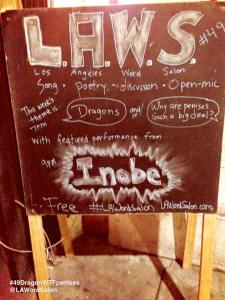 L.A.W.S.
#49
Los Angeles Word Salon
Song • poetry • discussion • Open-mic
This week's
theme is...
7PM
Dragons
and
Why are penises
Such a big deal?
With featured performance from...
9PM
Inobe
Free #LAWordSalon LAWordSalon.com
#49DragonWTFpenises
@LAWordSalon